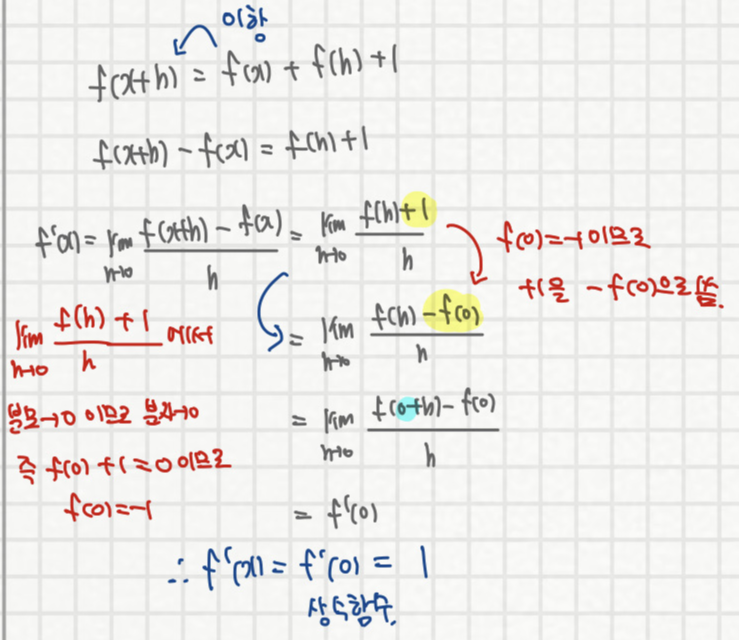 이항
f(x+h) = f(x) + f(h) + 1
f(x+h) - f(x) = f(h) + 1
f'(x) = lim h→0 f(x+h) - f(x) / h = lim h→0 f(h)+1 / h
f(0)=-1이므로
+1을 -f(0)으로 씀.
= lim h→0 f(h) - f(0) / h
lim h→0 f(h) + 1 / h 에서
분모→0 이므로 분자→0
즉 f(0)+1=0이므로
f(0)=-1
= lim h→0 f(0+h) - f(0) / h
= f'(0)
∴ f'(x) = f'(0) = 1
상수함수.